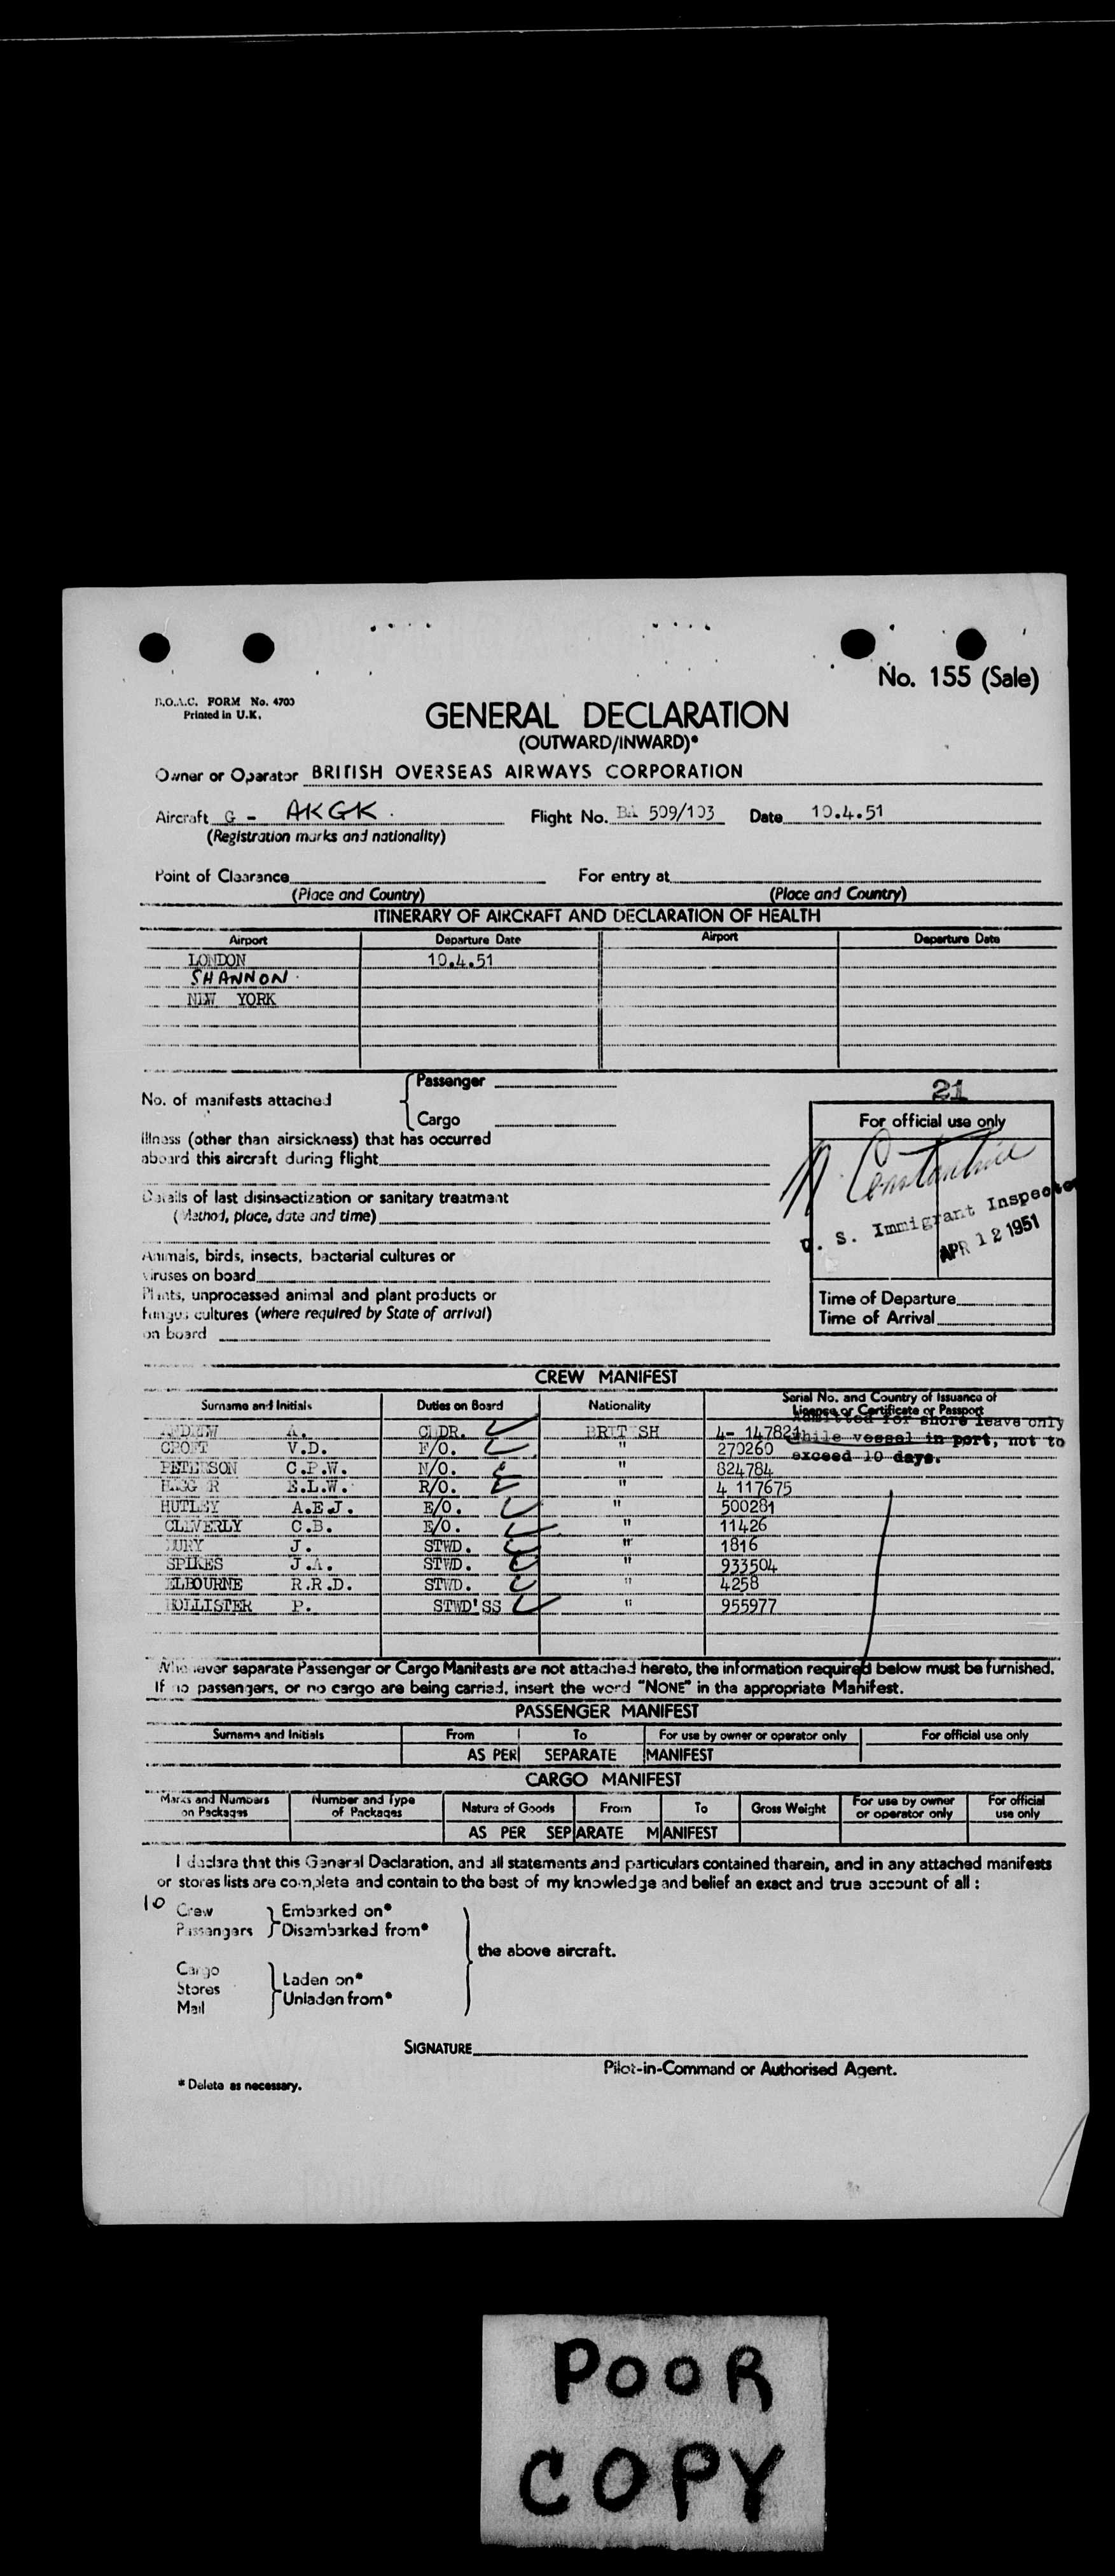 No. 155 (Sale)
B.O.A.C. FORM No. 4703
Printed in U.K.
GENERAL DECLARATION
(OUTWARD/INWARD)*
Owner or Operator BRITISH OVERSEAS AIRWAYS CORPORATION
Aircraft G - AKGK. Flight No. BA 509/103 Date 10.4.51
(Registration marks and nationality)
Point of Clearance For entry at
(Place and Country) (Place and Country)
ITINERARY OF AIRCRAFT AND DECLARATION OF HEALTH
Airport Departure Date Airport Departure Date
LONDON 10.4.51
SHANNON
NEW YORK
No. of manifests attached
Passenger
Cargo
21
For official use only
Constantine
U. S. Immigrant Inspector
APR 12 1951
Time of Departure
Time of Arrival
Illness (other than airsickness) that has occurred
aboard this aircraft during flight
Details of last disinsectization or sanitary treatment
(Method, place, date and time)
Animals, birds, insects, bacterial cultures or
viruses on board
Plants, unprocessed animal and plant products or
fungus cultures (where required by State of arrival)
on board
CREW MANIFEST
Surname and Initials Duties on Board Nationality Serial No. and Country of Issuance of
Licence or Certificate or Passport
Admitted for shore leave only
while vessel in port, not to
exceed 10 days.
ANDREW A. CMDR. BRITISH 4- 147821
CROFT V.D. F/O. " 270260
PETERSON C.P.W. N/O. " 824784
E.L.W. R/O. " 4 117675
HUTLEY A.E.J. E/O. " 500281
CLEVERLY C.B. E/O. " 11426
J. STWD. " 1816
SPIKES J.A. STWD. " 933504
ELBOURNE R.R.D. STWD. " 4258
HOLLISTER P. STWD'SS " 955977
Whenever separate Passenger or Cargo Manifests are not attached hereto, the information required below must be furnished.
If no passengers, or no cargo are being carried, insert the word "NONE" in the appropriate Manifest.
PASSENGER MANIFEST
Surname and Initials From To For use by owner or operator only For official use only
AS PER SEPARATE MANIFEST
CARGO MANIFEST
Marks and Numbers on Packages Number and Type of Packages Nature of Goods From To Gross Weight For use by owner or operator only For official use only
AS PER SEPARATE MANIFEST
I declare that this General Declaration, and all statements and particulars contained therein, and in any attached manifests
or stores lists are complete and contain to the best of my knowledge and belief an exact and true account of all :
10 Crew Embarked on*
Passengers Disembarked from*
the above aircraft.
Cargo
Stores
Mail
Laden on*
Unladen from*
SIGNATURE
Pilot-in-Command or Authorised Agent.
* Delete as necessary.
POOR
COPY